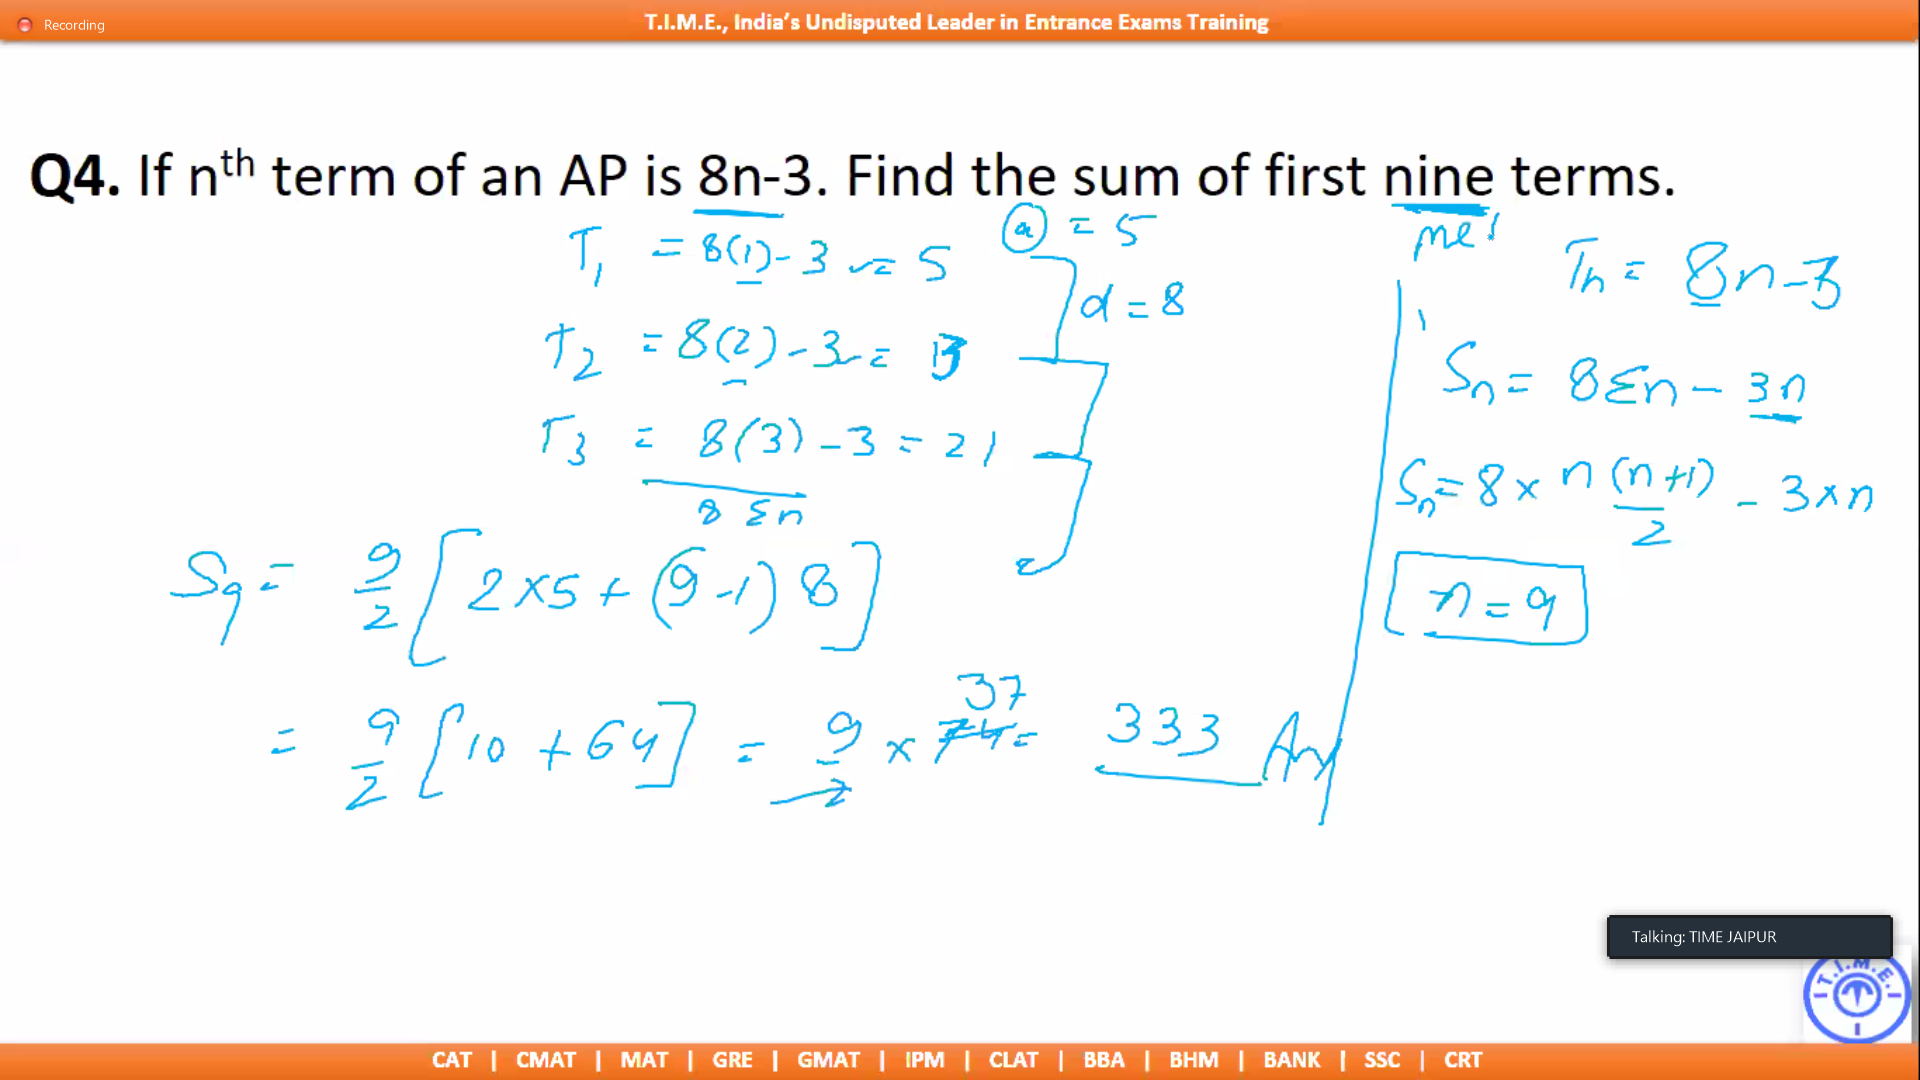 Recording
T.I.M.E., India's Undisputed Leader in Entrance Exams Training
Q4. If nth term of an AP is 8n-3. Find the sum of first nine terms.
T1 = 8(1) - 3 = 5
a = 5
d = 8
T2 = 8(2) - 3 = 13
T3 = 8(3) - 3 = 21
8 Σn
S9 = 9/2 [2×5 + (9-1) 8]
= 9/2 [10 + 64] = 9/2 × 74 = 333 Ans
37
Tn = 8n-3
Sn = 8Σn - 3n
Sn = 8 × n (n+1)/2 - 3×n
n = 9
Talking: TIME JAIPUR
T.I.M.E.
CAT | CMAT | MAT | GRE | GMAT | IPM | CLAT | BBA | BHM | BANK | SSC | CRT